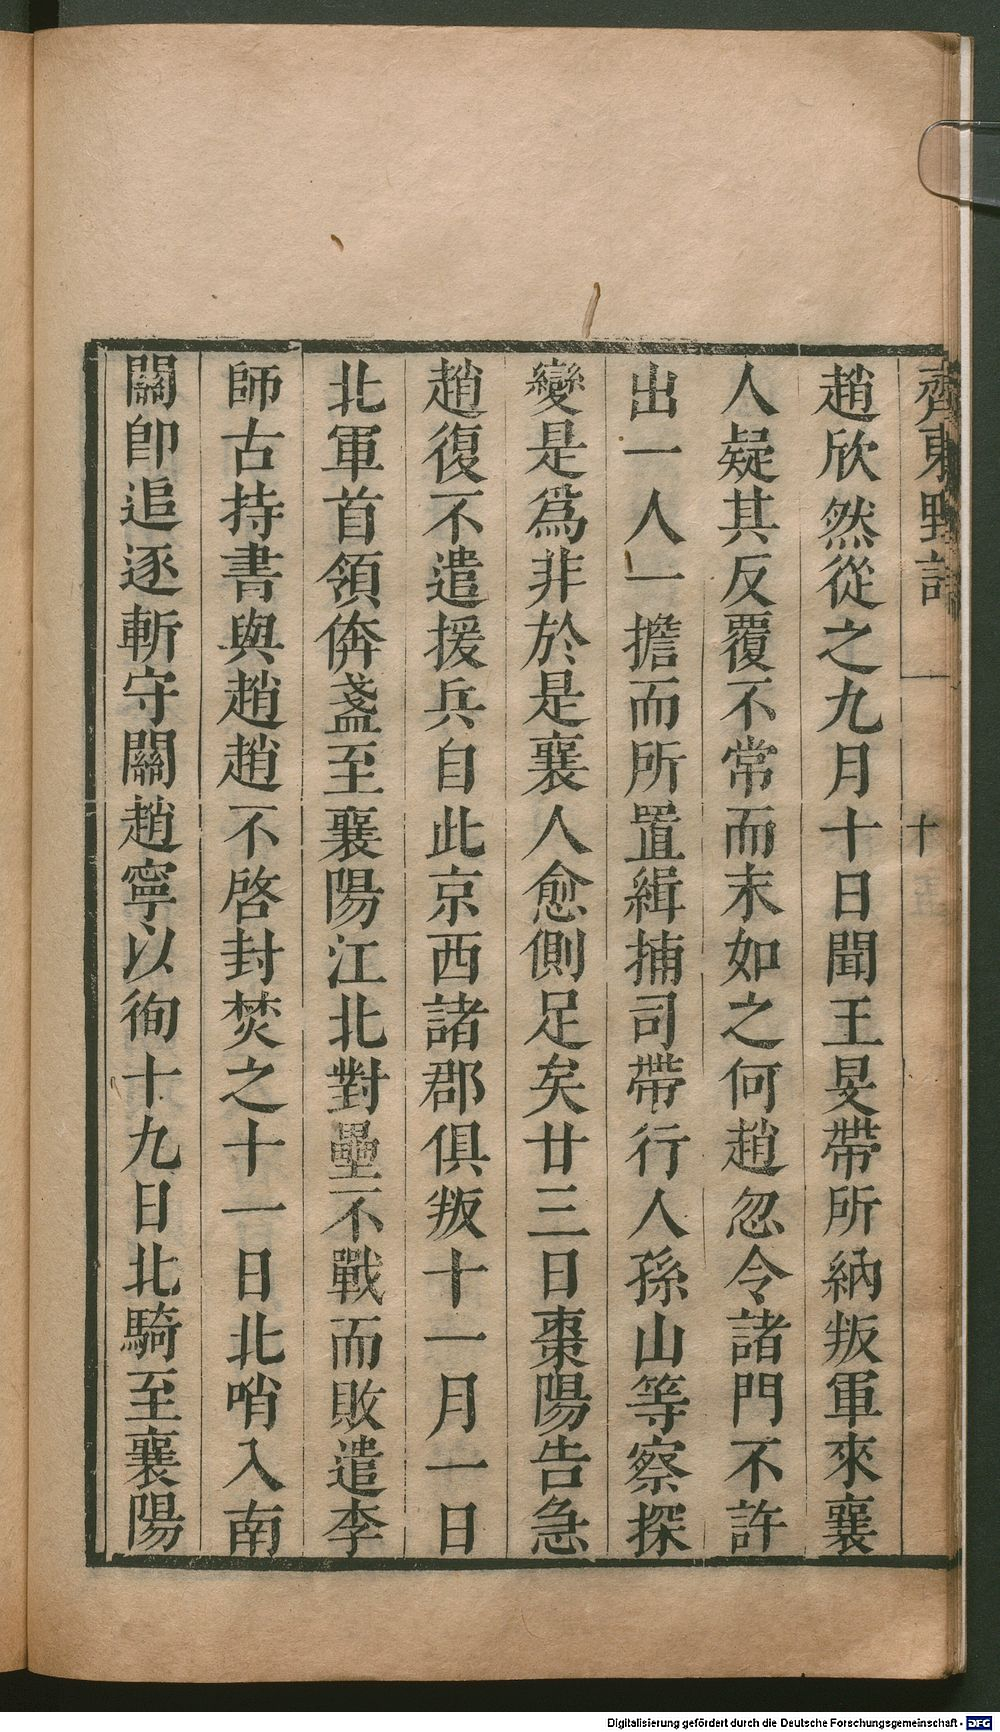 齊東野語 十
趙欣然從之九月十日聞王旻帶所納叛軍來襄
人疑其反覆不常而末如之何趙忽令諸門不許
出一人一擔而所置緝捕司帶行人孫山等察探
變是爲非於是襄人愈側足矣廿三日棗陽告急
趙復不遣援兵自此京西諸郡俱叛十一月一日
北軍首領倴盞至襄陽江北對壘不戰而敗遣李
師古持書與趙趙不啓封焚之十一日北哨入南
關卽追逐斬守關趙寧以徇十九日北騎至襄陽
Digitalisierung gefördert durch die Deutsche Forschungsgemeinschaft - DFG